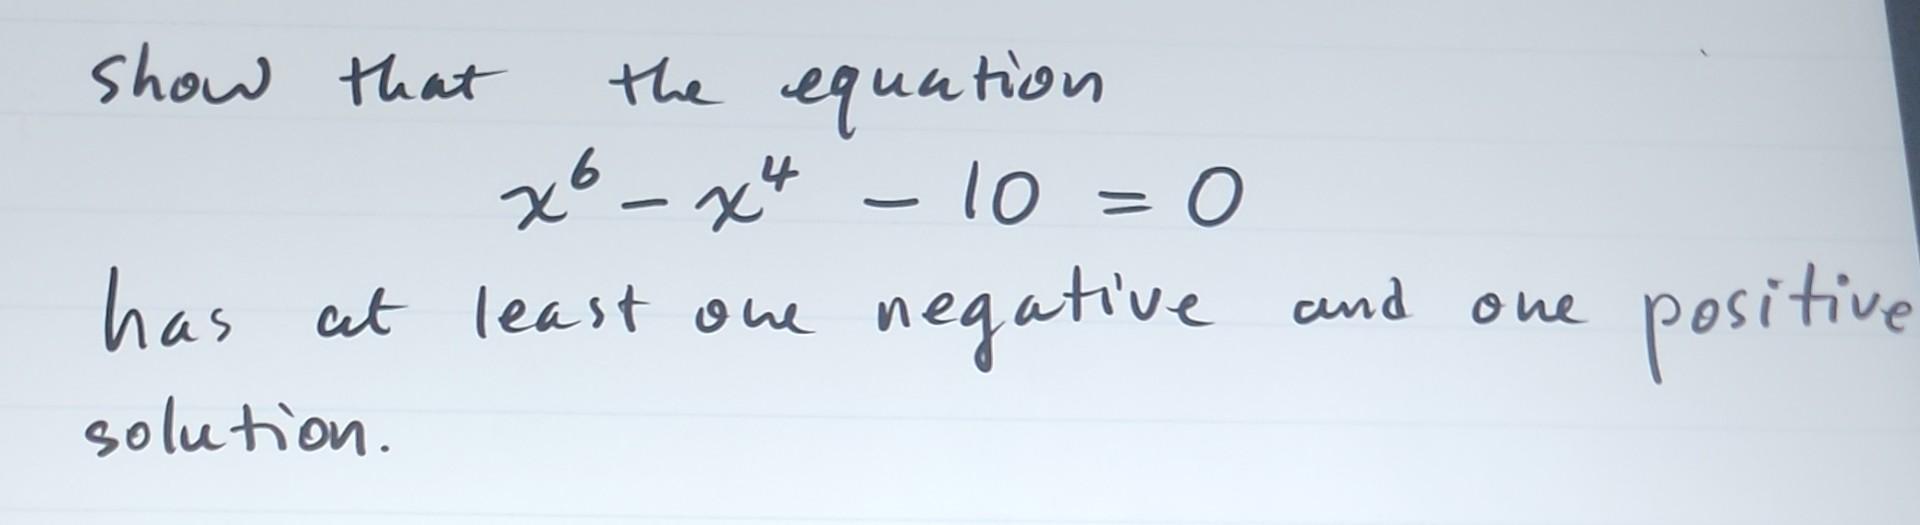 show that the equation
x⁶ - x⁴ - 10 = 0
has at least one negative and one positive
solution.